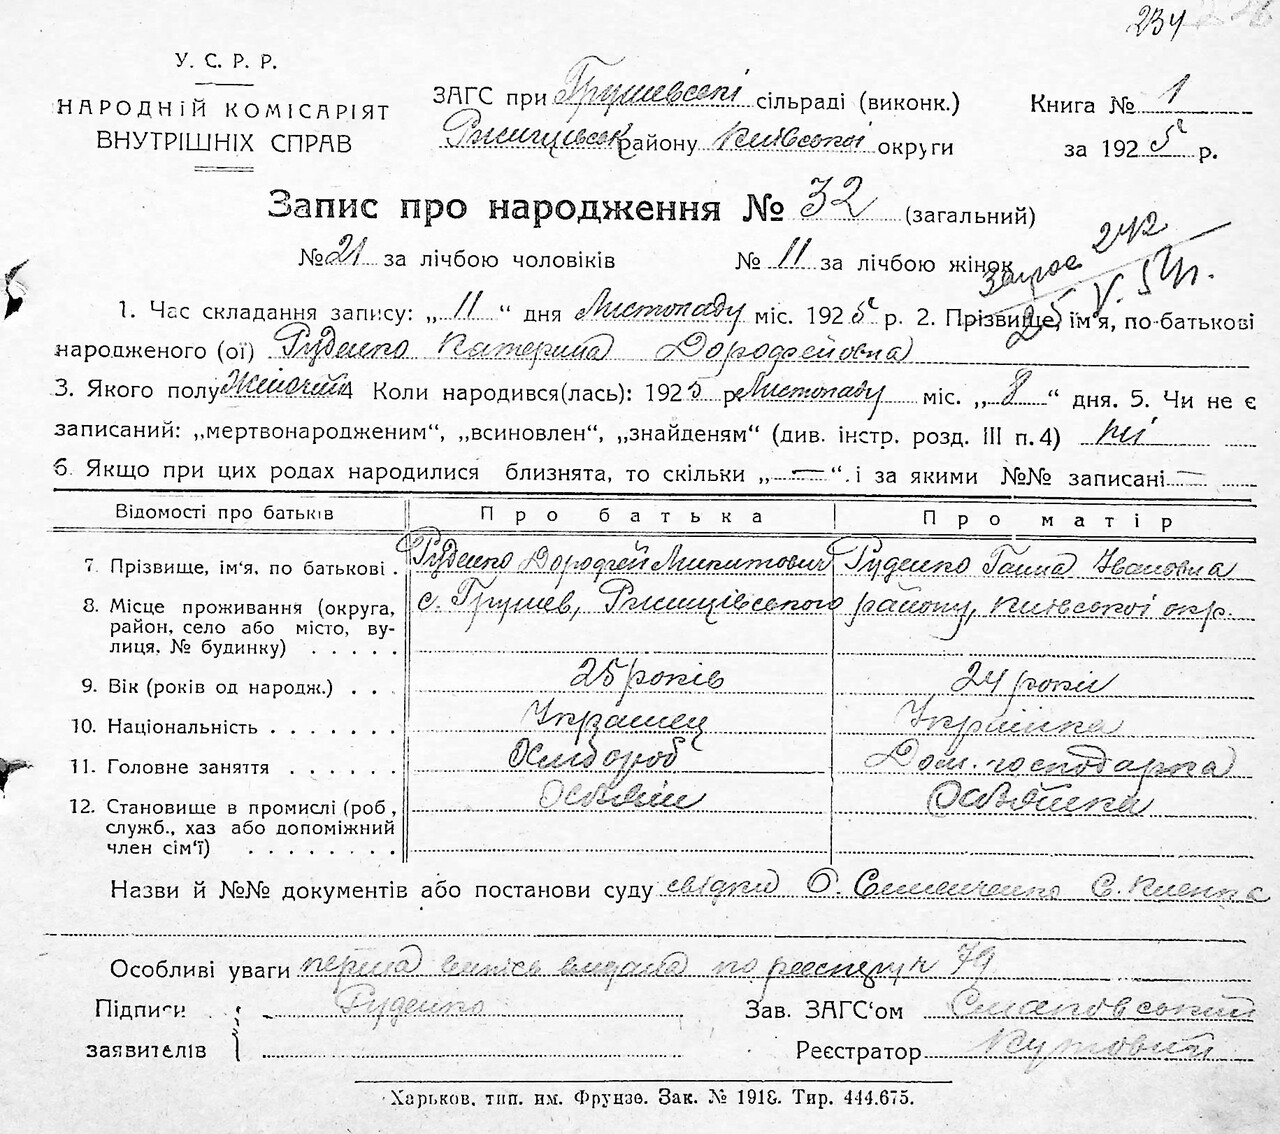 234
У. С. Р. Р.
НАРОДНІЙ КОМІСАРІЯТ
ВНУТРІШНІХ СПРАВ
ЗАГС при Грушевські сільраді (виконк.)
Ржищівськ району Київської округи
Книга № 1
за 1925 р.
Запис про народження № 32 (загальний)
№ 21 за лічбою чоловіків № 11 за лічбою жінок
242
25 V. 51р.
1. Час складання запису: „ 11 “ дня Листопаду міс. 1925 р. 2. Прізвище, ім'я, по-батькові
народженого (ої) Руденко Катерина Дорофейовна
3. Якого полу Жіночій 4 Коли народився(лась): 1925 р. Листопаду міс. „ 8 “ дня. 5. Чи не є
записаний: „мертвонародженим“, „всиновлен“, „знайденям“ (див. інстр. розд. III п. 4) ні
6. Якщо при цих родах народилися близнята, то скільки „ — “. і за якими №№ записані —
Відомості про батьків Про батька Про матір
7. Прізвище, ім'я, по батькові . Руденко Дорофей Микитович Руденко Ганна Івановна
8. Місце проживання (округа, с. Грушев, Ржищівського району, Київської окр.
район, село або місто, ву-
лиця, № будинку) . . . . .
9. Вік (років од народж.) . . . 25 років 24 роки
10. Національність . . . . . . . Українец Українка
11. Головне заняття . . . . . . Хлібороб Дом. господарка
12. Становище в промислі (роб,
служб., хаз або допоміжний
член сім'ї) . . . . . . . .
Назви й №№ документів або постанови суду свідки О. Семенченко Є.
Особливі уваги перша випись видана по реєстру № 79
Підписи Руденко Зав. ЗАГС'ом
заявителів Реєстратор Кутовий
Харьков, тип. им. Фрунзе. Зак. № 1918. Тир. 444.675.